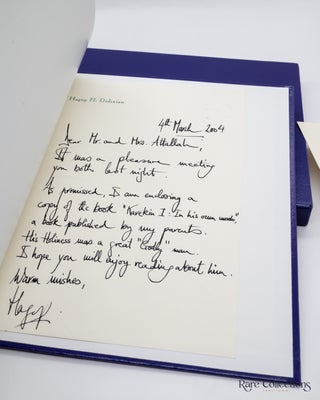 Hagop H. Didizian
4th March 2004
Dear Mr. and Mrs. Attallah,
It was a pleasure meeting
you both last night.
As promised, I am enclosing a
copy of the book "Karekin I: In his own words",
a book published by my parents.
His Holiness was a great "Godly" man.
I hope you will enjoy reading about him.
Warm wishes,
Hagop
Rare Collections